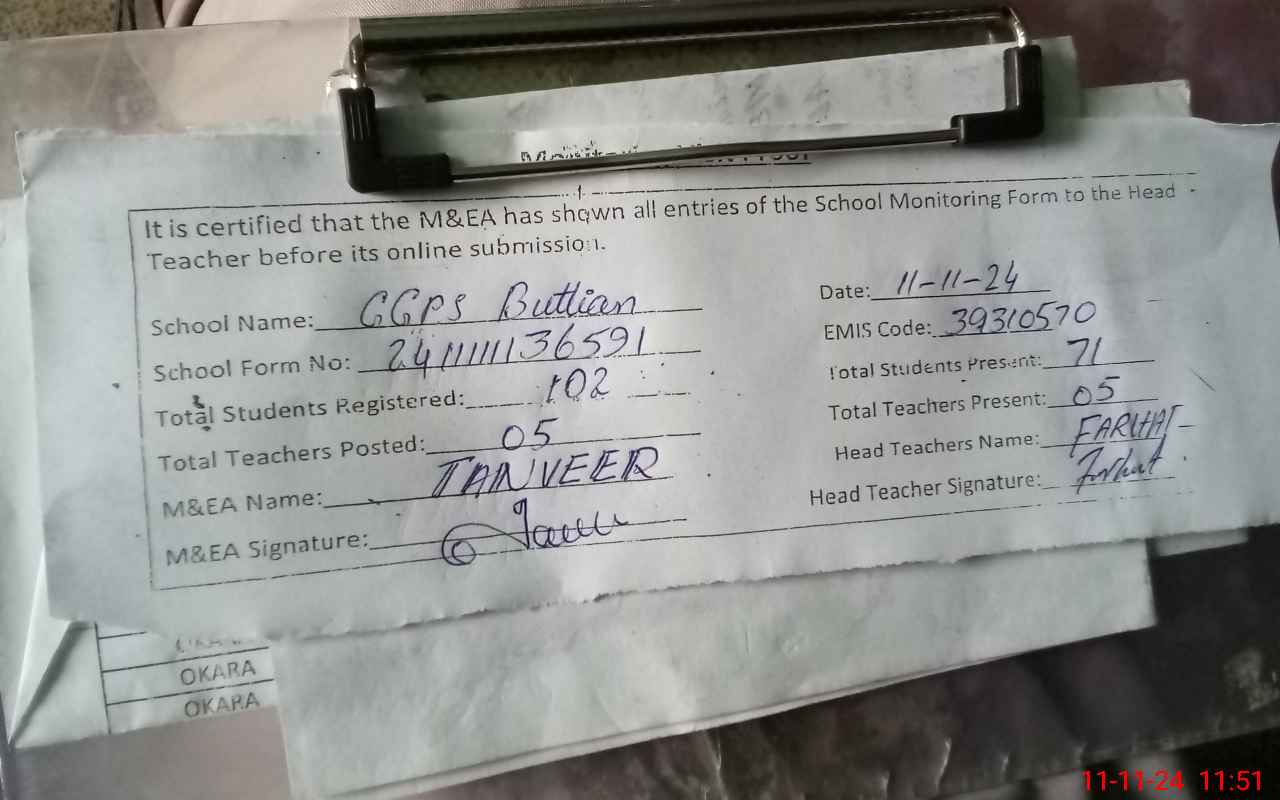 It is certified that the M&EA has shown all entries of the School Monitoring Form to the Head
Teacher before its online submission.
School Name: GGPS Butlian
Date: 11-11-24
School Form No: 241111136591
EMIS Code: 39310570
Total Students Registered: 102
Total Students Present: 71
Total Teachers Posted: 05
Total Teachers Present: 05
M&EA Name: TANVEER
Head Teachers Name: FARHAT
M&EA Signature:
Head Teacher Signature: Farhat
OKARA
OKARA
11-11-24 11:51